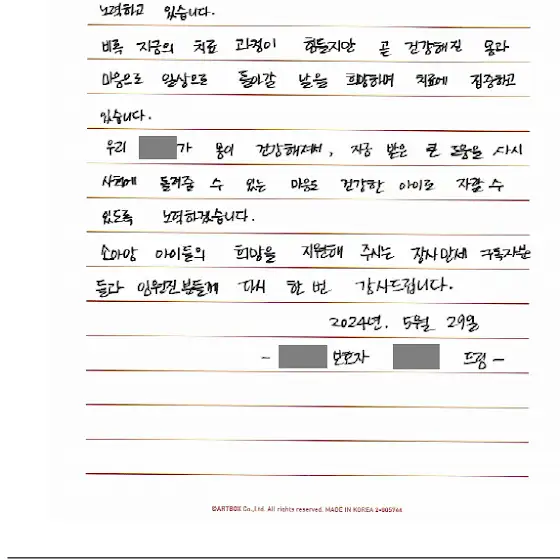 노력하고 있습니다.
비록 지금의 치료 과정이 힘들지만 곧 건강해진 몸과
마음으로 일상으로 돌아갈 날을 희망하며 치료에 집중하고
있습니다.
우리 가 몸이 건강해져서, 지금 받은 큰 도움을 다시
사회에 돌려줄 수 있는 마음도 건강한 아이로 자랄 수
있도록 노력하겠습니다.
소아암 아이들의 희망을 지원해 주시는 장사만세 구독자분
들과 임원진분들께 다시 한 번 감사드립니다.
2024년. 5월 29일
- 보호자 드림 -
©ARTBOX Co.,Ltd. All rights reserved. MADE IN KOREA 2-005766